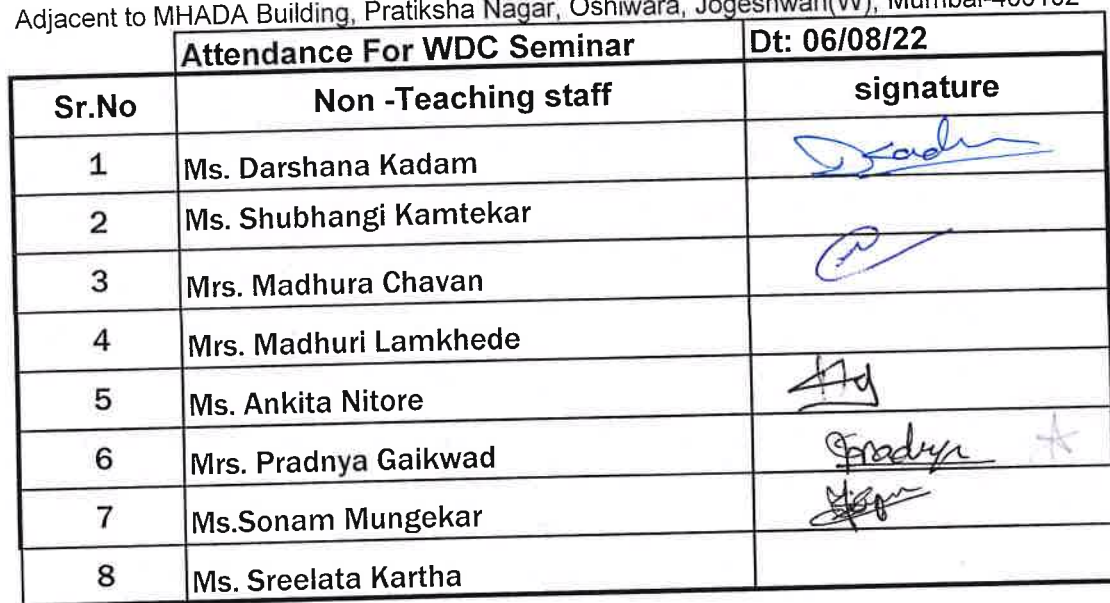 Adjacent to MHADA Building, Pratiksha Nagar, Oshiwara, Jogeshwari(W), Mumbai-400102
Attendance For WDC Seminar Dt: 06/08/22
Sr.No Non -Teaching staff signature
1 Ms. Darshana Kadam
2 Ms. Shubhangi Kamtekar
3 Mrs. Madhura Chavan
4 Mrs. Madhuri Lamkhede
5 Ms. Ankita Nitore
6 Mrs. Pradnya Gaikwad Pradnya
7 Ms.Sonam Mungekar
8 Ms. Sreelata Kartha